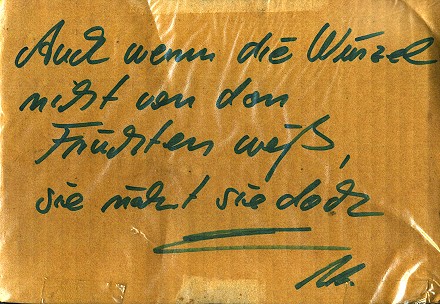 Auch wenn die Wurzel
nicht von den
Früchten weiß,
sie nährt sie doch